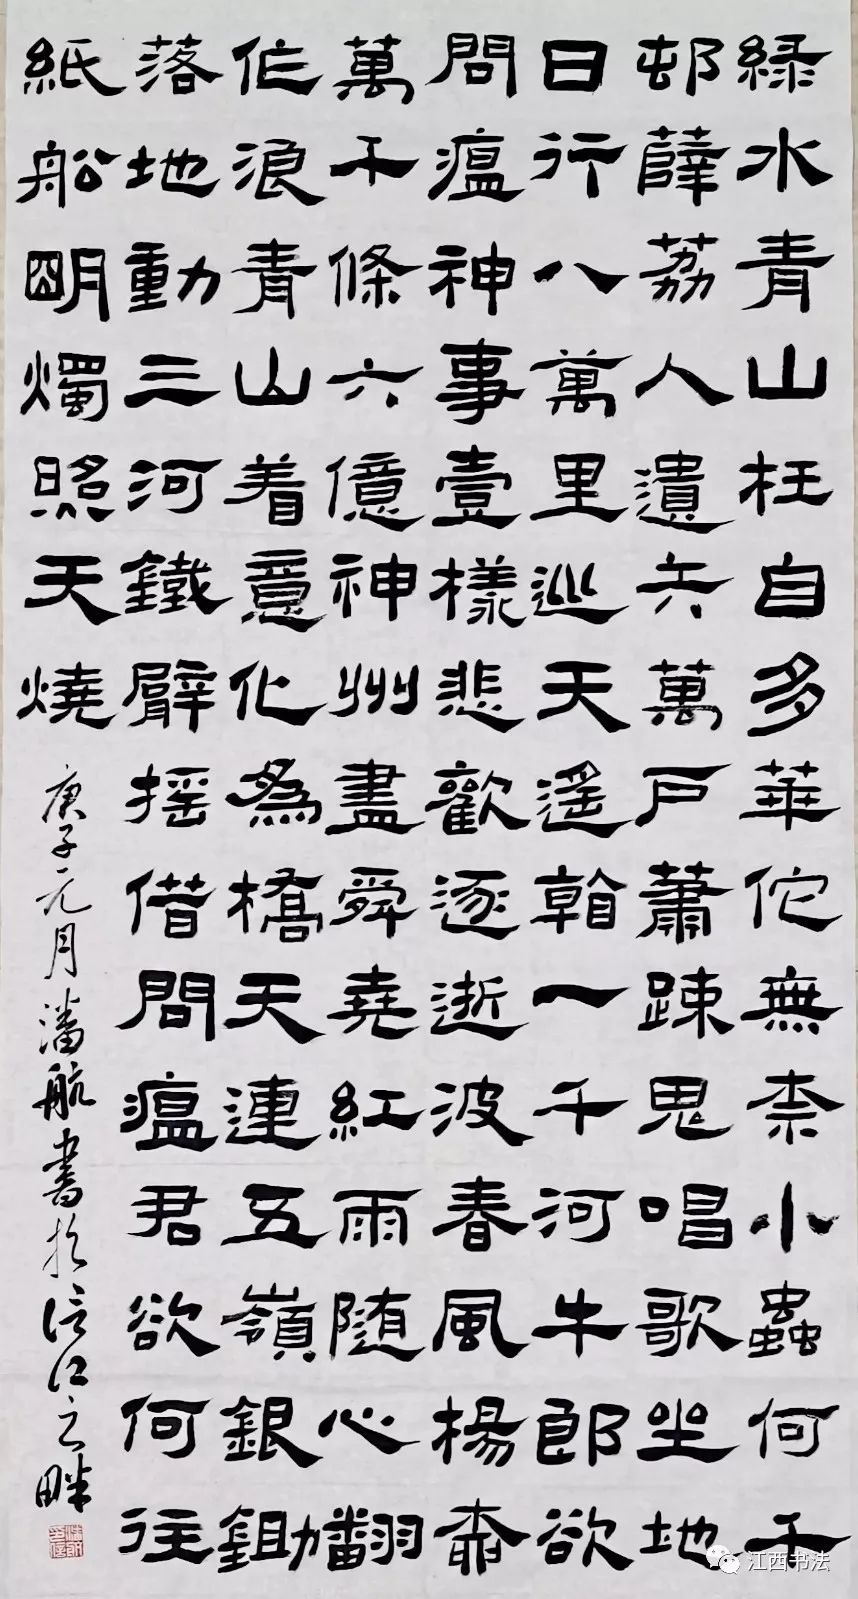 綠水青山枉自多華佗無柰小蟲何千
邨薜荔人遺矢萬戶蕭踈鬼唱歌坐地
日行八萬里巡天遙看一千河牛郎欲
問瘟神事壹樣悲歡逐逝波春風楊柳
萬千條六億神州盡舜堯紅雨隨心翻
作浪青山着意化為橋天連五嶺銀鋤
落地動三河鐵臂搖借問瘟君欲何往
紙船明燭照天燒
庚子元月潘航書於信江之畔
江西书法